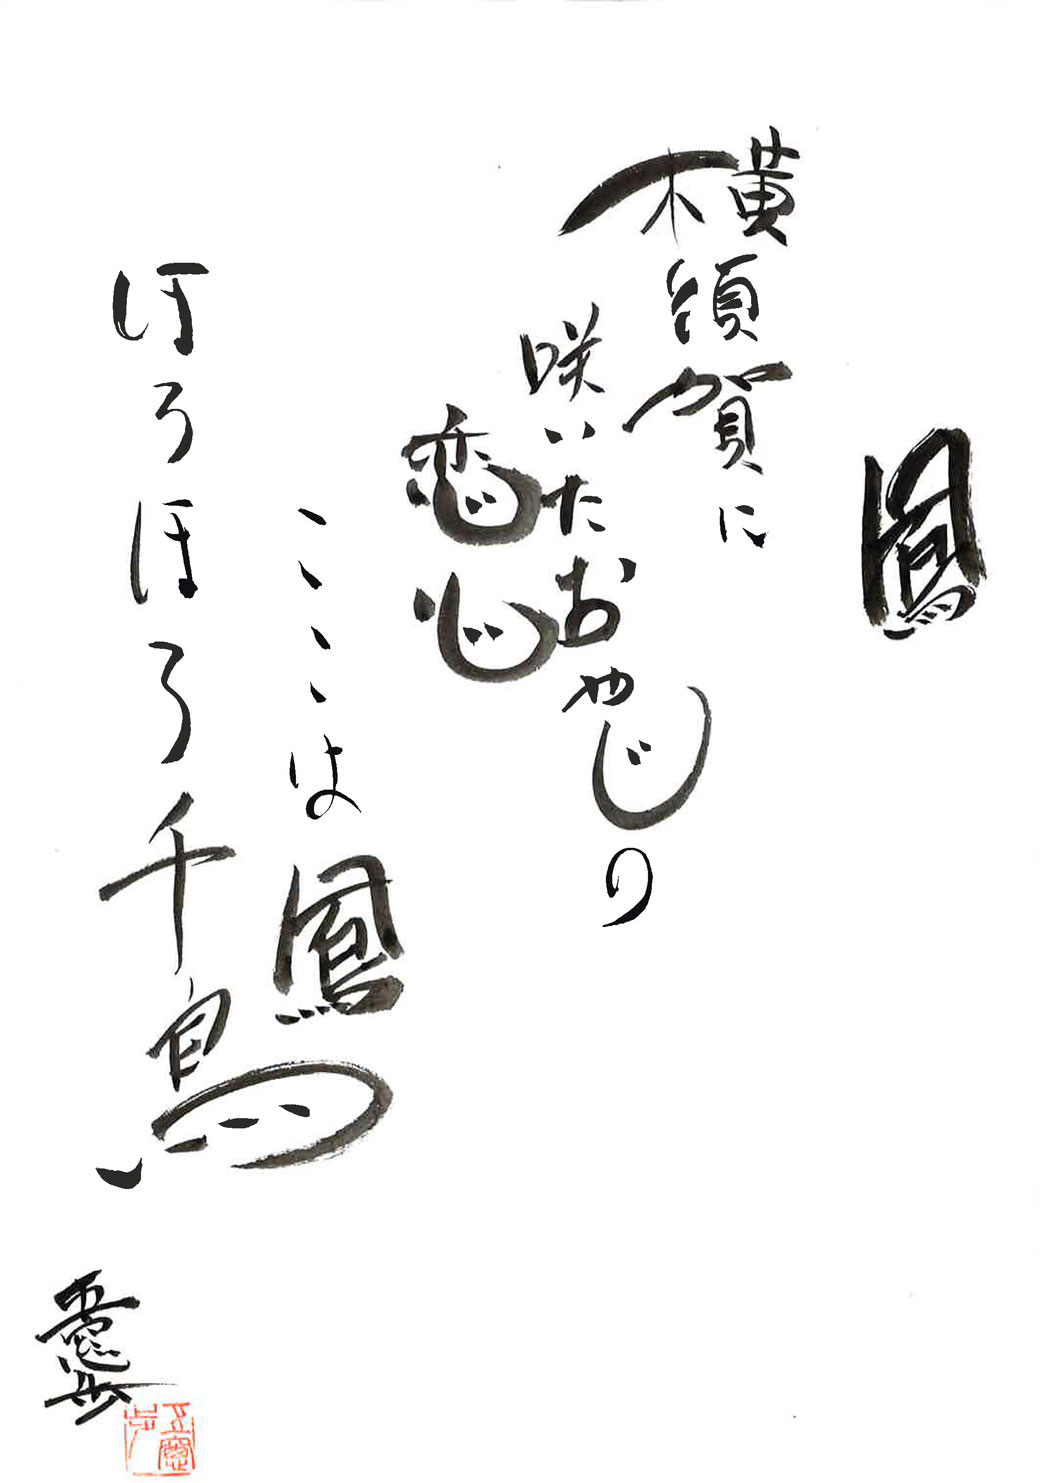 鳳
横須賀に
咲いたおやじの
恋心
こゝは鳳
ほろほろ千鳥